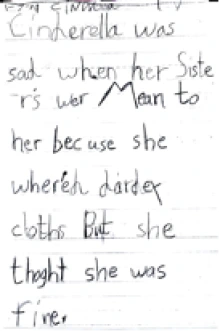 Cinderella was
sad when her Siste
r's wer Mean to
her becuse she
cloths But she
thoght she was
fine.